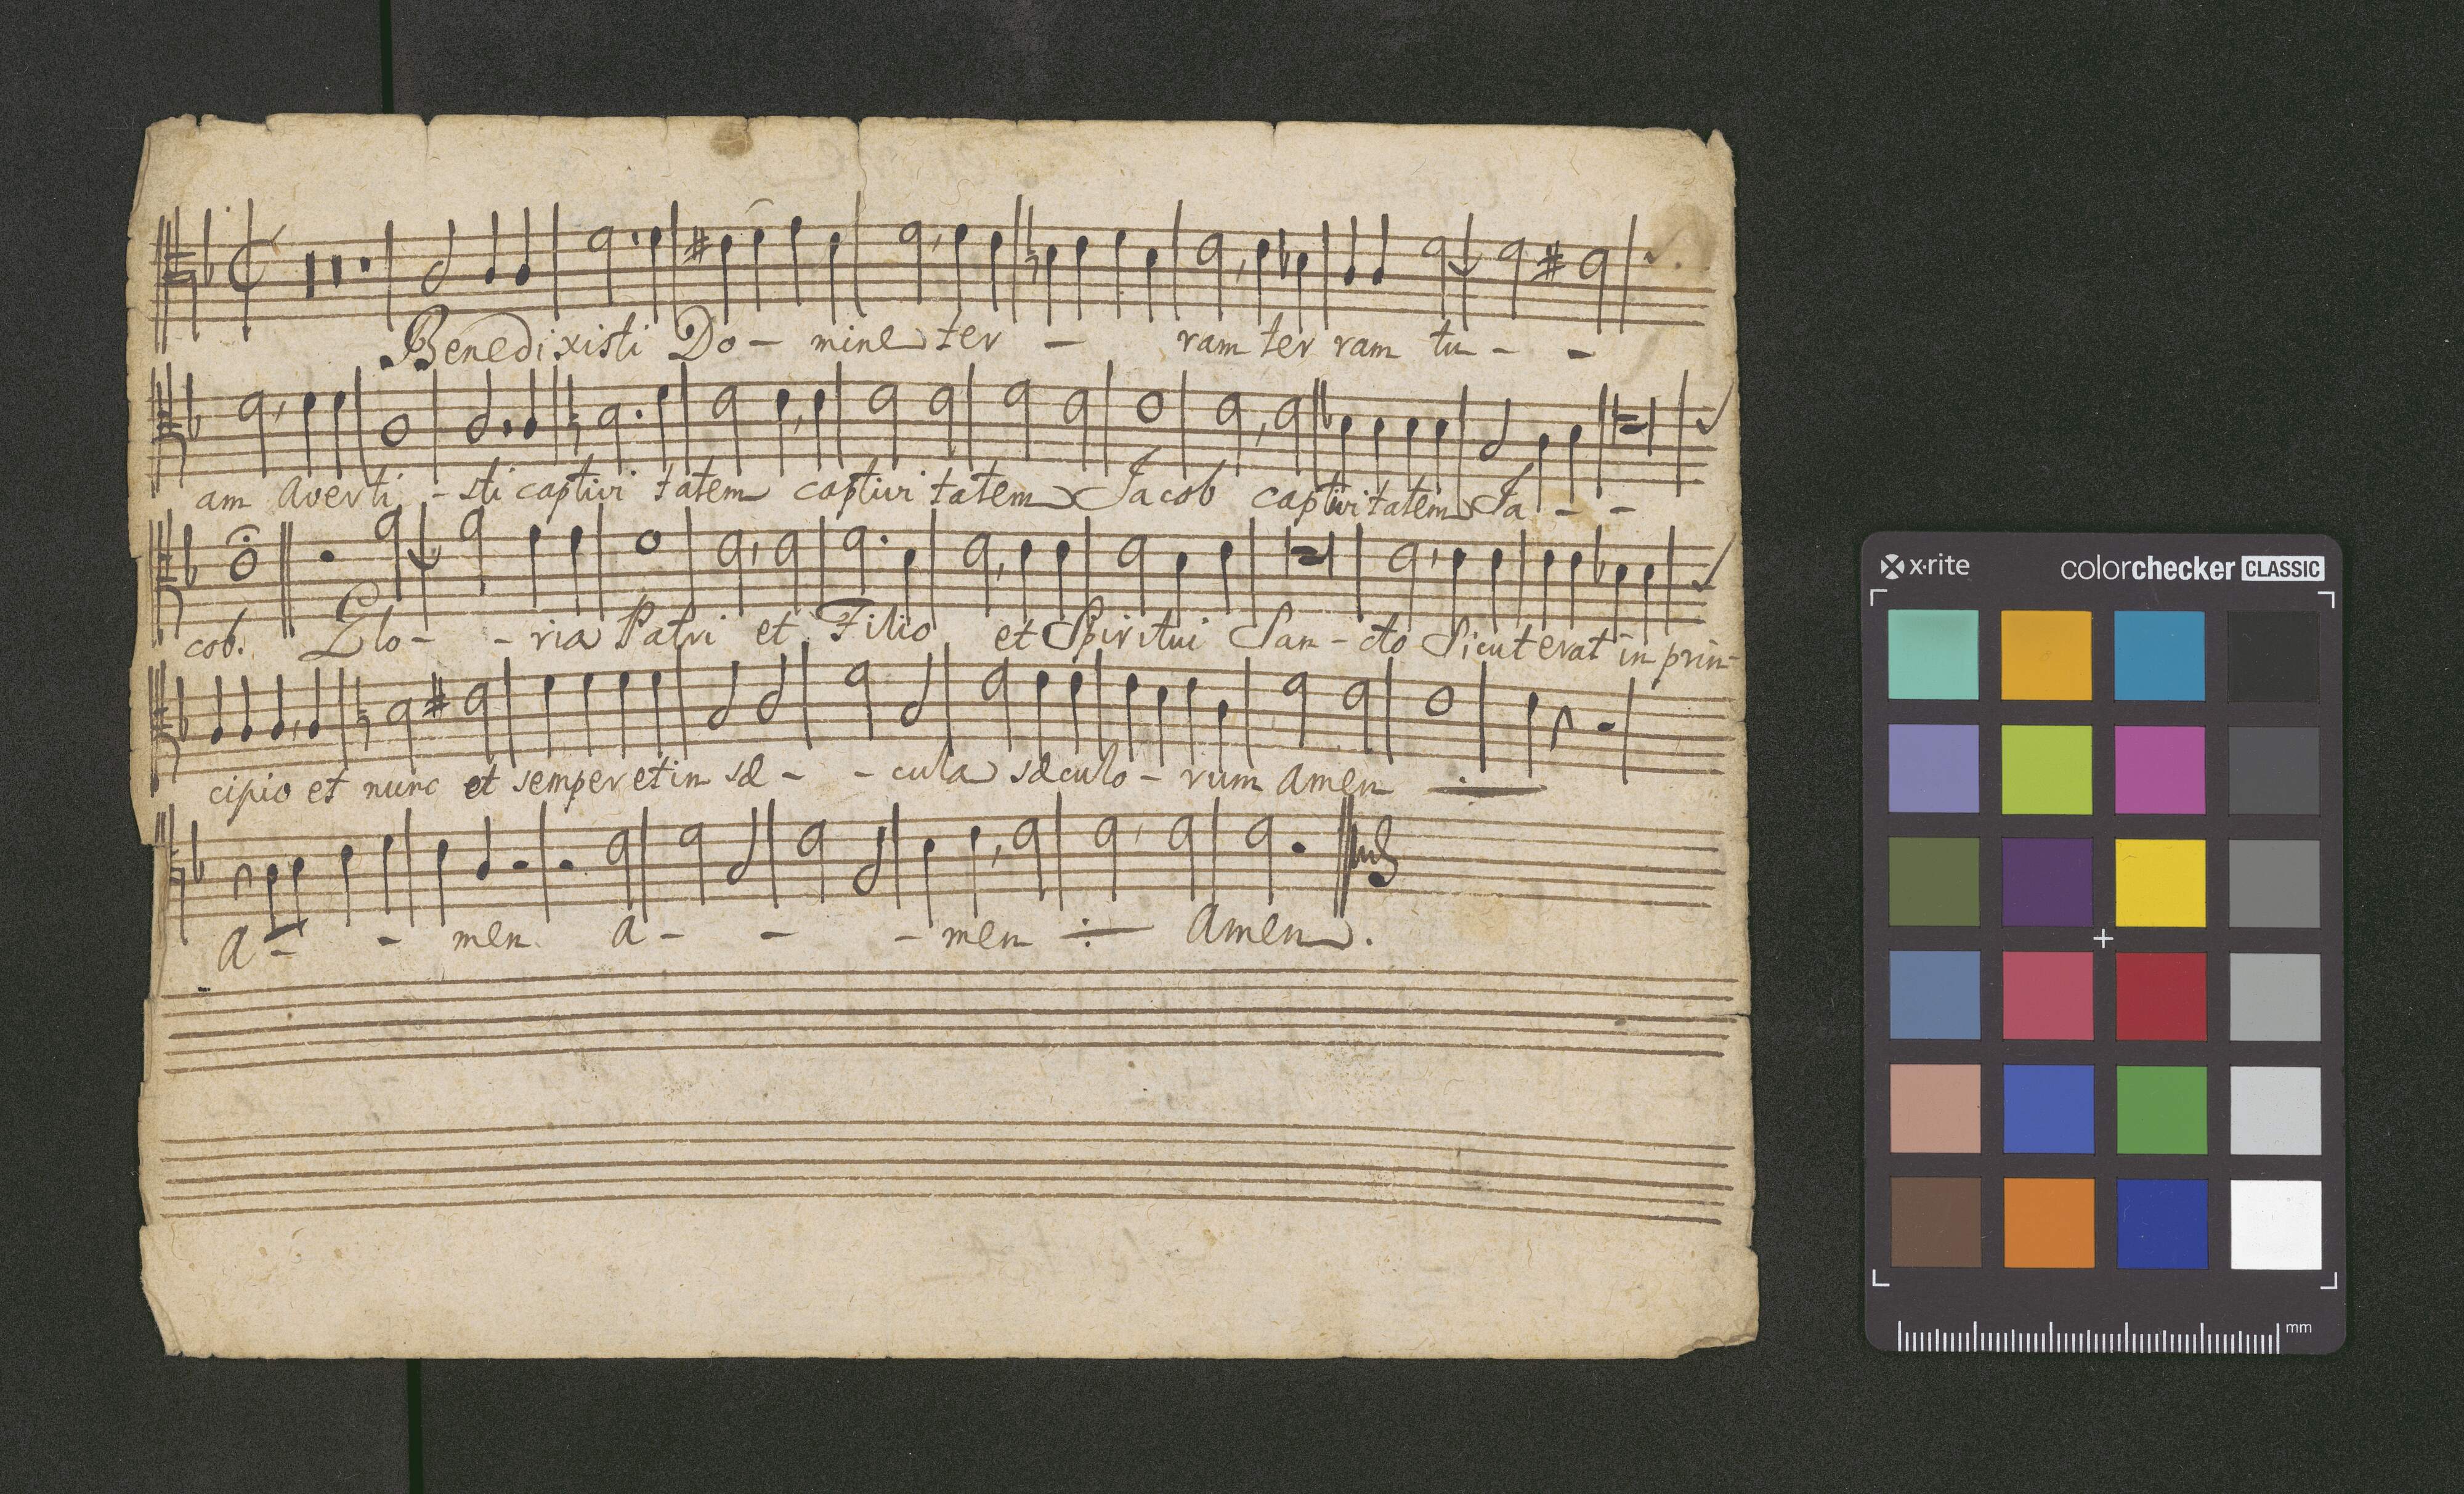 Benedixisti Do - mine ter - ram ter ram tu - -
am averti - sti captivi tatem captivi tatem Jacob captivitatem Ja - -
cob. Glo - - ria Patri et Filio et Spiritui San - cto Sicut erat in prin-
cipio et nunc et semper et in sæ - - cula sæculo - rum Amen
A - - men a - - - men Amen.
x·rite colorchecker CLASSIC
mm